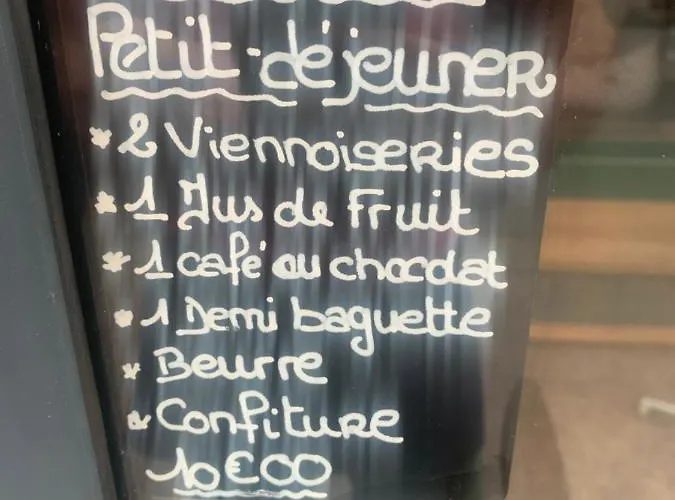 Petit-déjeuner
* 2 Viennoiseries
* 1 Jus de Fruit
* 1 café au chocdat
* 1 Demi baguette
* Beurre
* Confiture
10€00